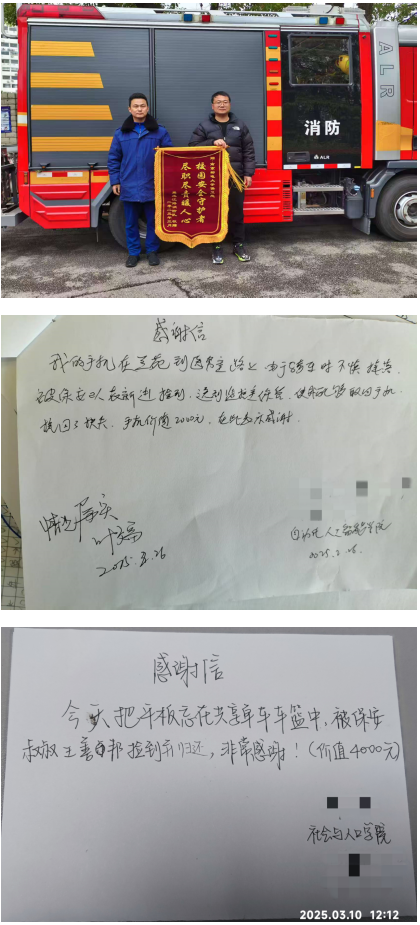 消防
ALR
ALR
校园安全守护者
尽职尽责暖人心
感谢信
我的手机在兰苑到图书主路上由于骑车时不慎掉落
被保安队袁新进捡到,送到监控室保管,使我能够取回手机
挽回了损失,手机价值2000元,在此表示感谢!
情况属实
2025.3.26
自动化人工智能学院
2025.3.26.
感谢信
今天把平板忘在共享单车车篮中,被保安
叔叔王喜邦捡到并归还,非常感谢!(价值4000元)
社会与人口学院
2025.03.10 12:12